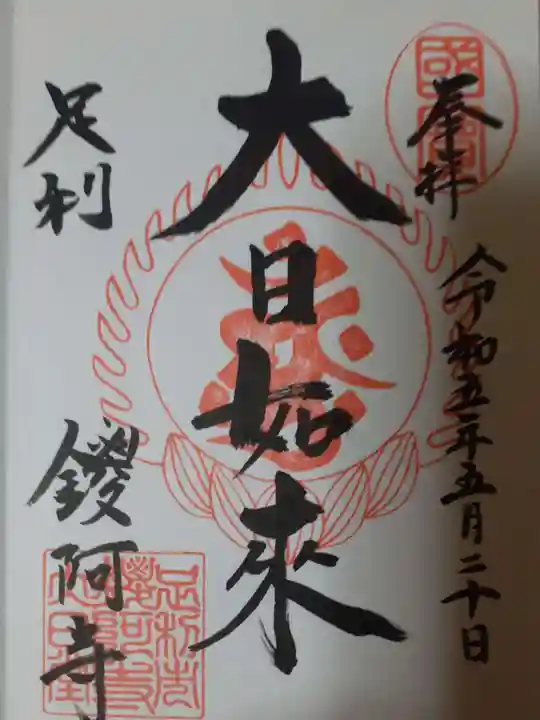 奉拝
令和五年五月二十日
大日如來
足利
鑁阿寺
國寶